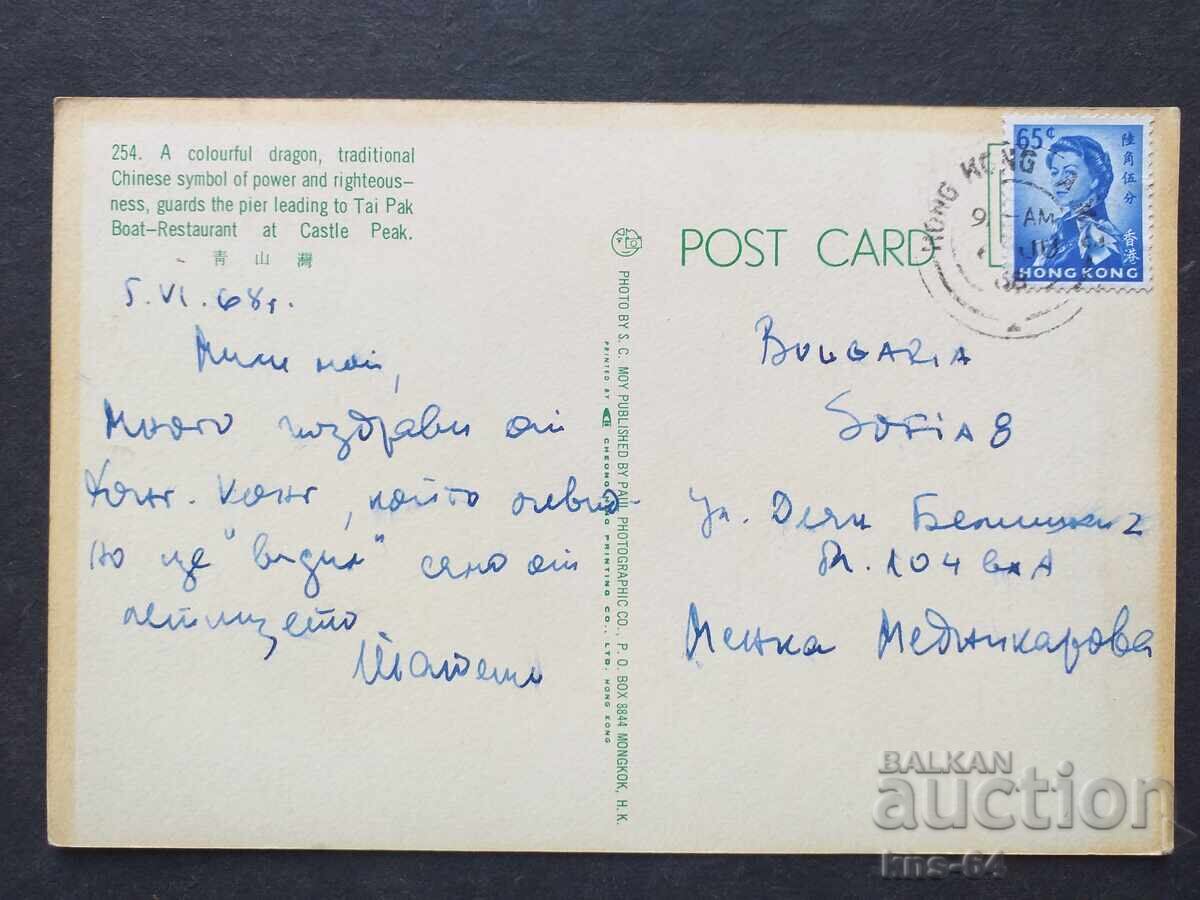 254. A colourful dragon, traditional
Chinese symbol of power and righteous–
ness, guards the pier leading to Tai Pak
Boat–Restaurant at Castle Peak.
青 山 灣
5.VI.68г.
Мили мои,
Много поздрави от
Хонг-Конг, който очевид-
но ще "видим" само от
летището
POST CARD
PHOTO BY S. C. MOY PUBLISHED BY PAUL PHOTOGRAPHIC CO., P. O. BOX 8844 MONGKOK, H. K.
PRINTED BY CHEONG MING PRINTING CO., LTD. HONG KONG
65¢
陸角伍分
香港
HONG KONG
HONG KONG
9 – AM
JU
68
BULGARIA
SOFIA 8
ул. Деян Белишки 2
бл. 104 вх А
Менка Медникарова
BALKAN
auction
kns-64